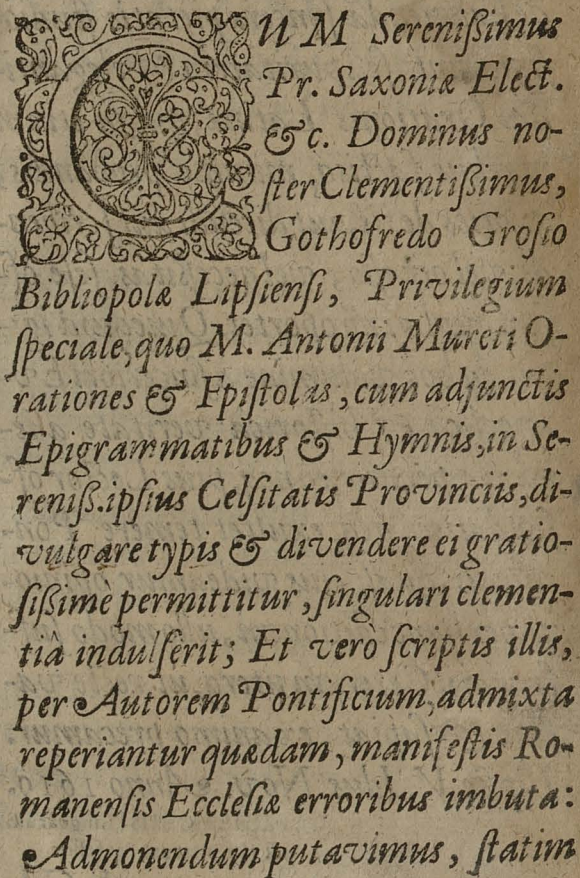 CUM Sereniſſimus
Pr. Saxoniæ Elect.
&c. Dominus no-
ſter Clementiſſimus,
Gothofredo Groſio
Bibliopolæ Lipſienſi, Privilegium
ſpeciale, quo M. Antonii Mureti O-
rationes & Epiſtolas, cum adjunctis
Epigrammatibus & Hymnis, in Se-
reniſſ. ipſius Celſitatis Provinciis, di-
vulgare typis & divendere ei gratio-
ſiſſimè permittitur, ſingulari clemen-
tiâ indulſerit; Et verò ſcriptis illis,
per Autorem Pontificium, admixta
reperiantur quædam, manifeſtis Ro-
manenſis Eccleſiæ erroribus imbuta:
Admonendum putavimus, ſtatim